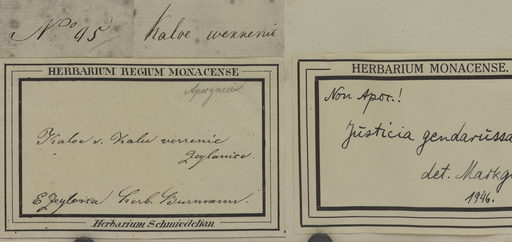 No 95
Kaloe werrenie
HERBARIUM REGIUM MONACENSE
Apocynea
Kaloe v. Kalu verrenie
Zeylonice.
E Zeylona herb. Burmann.
Herbarium Schmiedelian
HERBARIUM MONACENSE.
Non Apoc.!
Justicia gendarussa
det. Markg
1946.